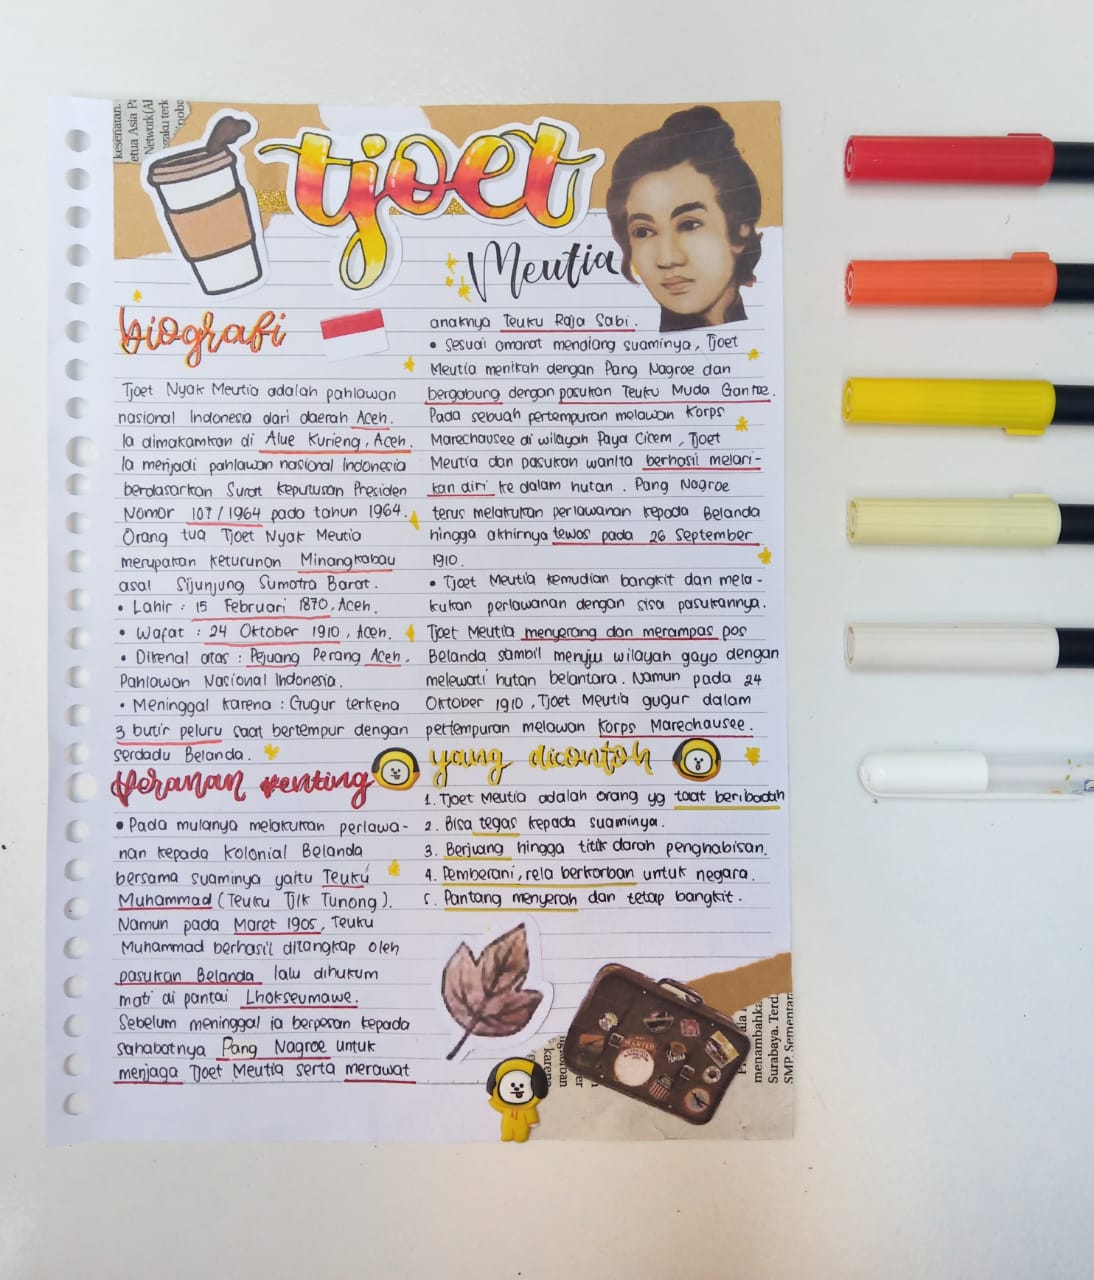 kesenatan.
etua Asia Pa
Network(Al
ngaku terk
noba
tjoet
Meutia
biografi
Tjoet Nyak Meutia adalah pahlawan
nasional Indonesia dari daerah Aceh.
Ia dimakamkan di Alue Kurieng, Aceh.
Ia menjadi pahlawan nasional Indonesia
berdasarkan Surat keputusan Presiden
Nomor 107/1964 pada tahun 1964.
Orang tua Tjoet Nyak Meutia
merupakan keturunan Minangkabau
asal Sijunjung Sumatra Barat.
• Lahir : 15 Februari 1870, Aceh.
• Wafat : 24 Oktober 1910, Aceh.
• Dikenal atas : Pejuang Perang Aceh,
Pahlawan Nasional Indonesia.
• Meninggal karena : Gugur terkena
3 butir peluru saat bertempur dengan
serdadu Belanda.
Peranan Penting
• Pada mulanya melakukan perlawa-
nan kepada Kolonial Belanda
bersama suaminya yaitu Teuku
Muhammad (Teuku Tjik Tunong).
Namun pada Maret 1905, Teuku
Muhammad berhasil ditangkap oleh
pasukan Belanda lalu dihukum
mati di pantai Lhokseumawe.
Sebelum meninggal ia berpesan kepada
sahabatnya Pang Nagroe untuk
menjaga Tjoet Meutia serta merawat
anaknya Teuku Raja Sabi.
• Sesuai amanat mendiang suaminya, Tjoet
Meutia menikah dengan Pang Nagroe dan
bergabung dengan pasukan Teuku Muda Gantoe.
Pada sebuah pertempuran melawan Korps
Marechausee di wilayah Paya Cicem, Tjoet
Meutia dan pasukan wanita berhasil melari-
kan diri ke dalam hutan. Pang Nagroe
terus melakukan perlawanan kepada Belanda
hingga akhirnya tewas pada 26 September
1910.
• Tjoet Meutia kemudian bangkit dan mela-
kukan perlawanan dengan sisa pasukannya.
Tjoet Meutia menyerang dan merampas pos
Belanda sambil menuju wilayah gayo dengan
melewati hutan belantara. Namun pada 24
Oktober 1910, Tjoet Meutia gugur dalam
pertempuran melawan Korps Marechausee.
yang dicontoh
1. Tjoet Meutia adalah orang yg taat beribadah
2. Bisa tegas kepada suaminya.
3. Berjuang hingga titik darah penghabisan.
4. Pemberani, rela berkorban untuk negara.
5. Pantang menyerah dan tetap bangkit.
menambahka
Surabaya. Terd
SMP. Sementar